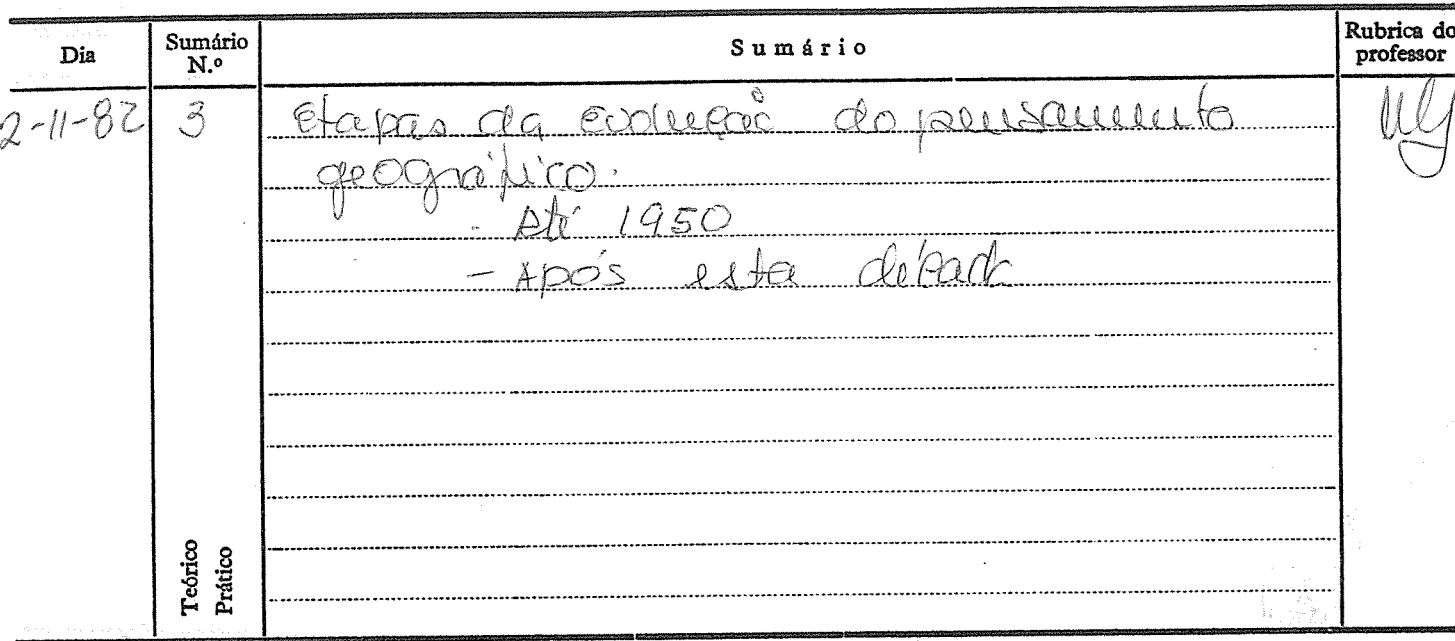 Dia
Sumário N.º
Sumário
Rubrica do professor
2-11-82 3 Etapas da evolução do pensamento
geográfico.
- Até 1950
- Após esta década
Teórico
Prático